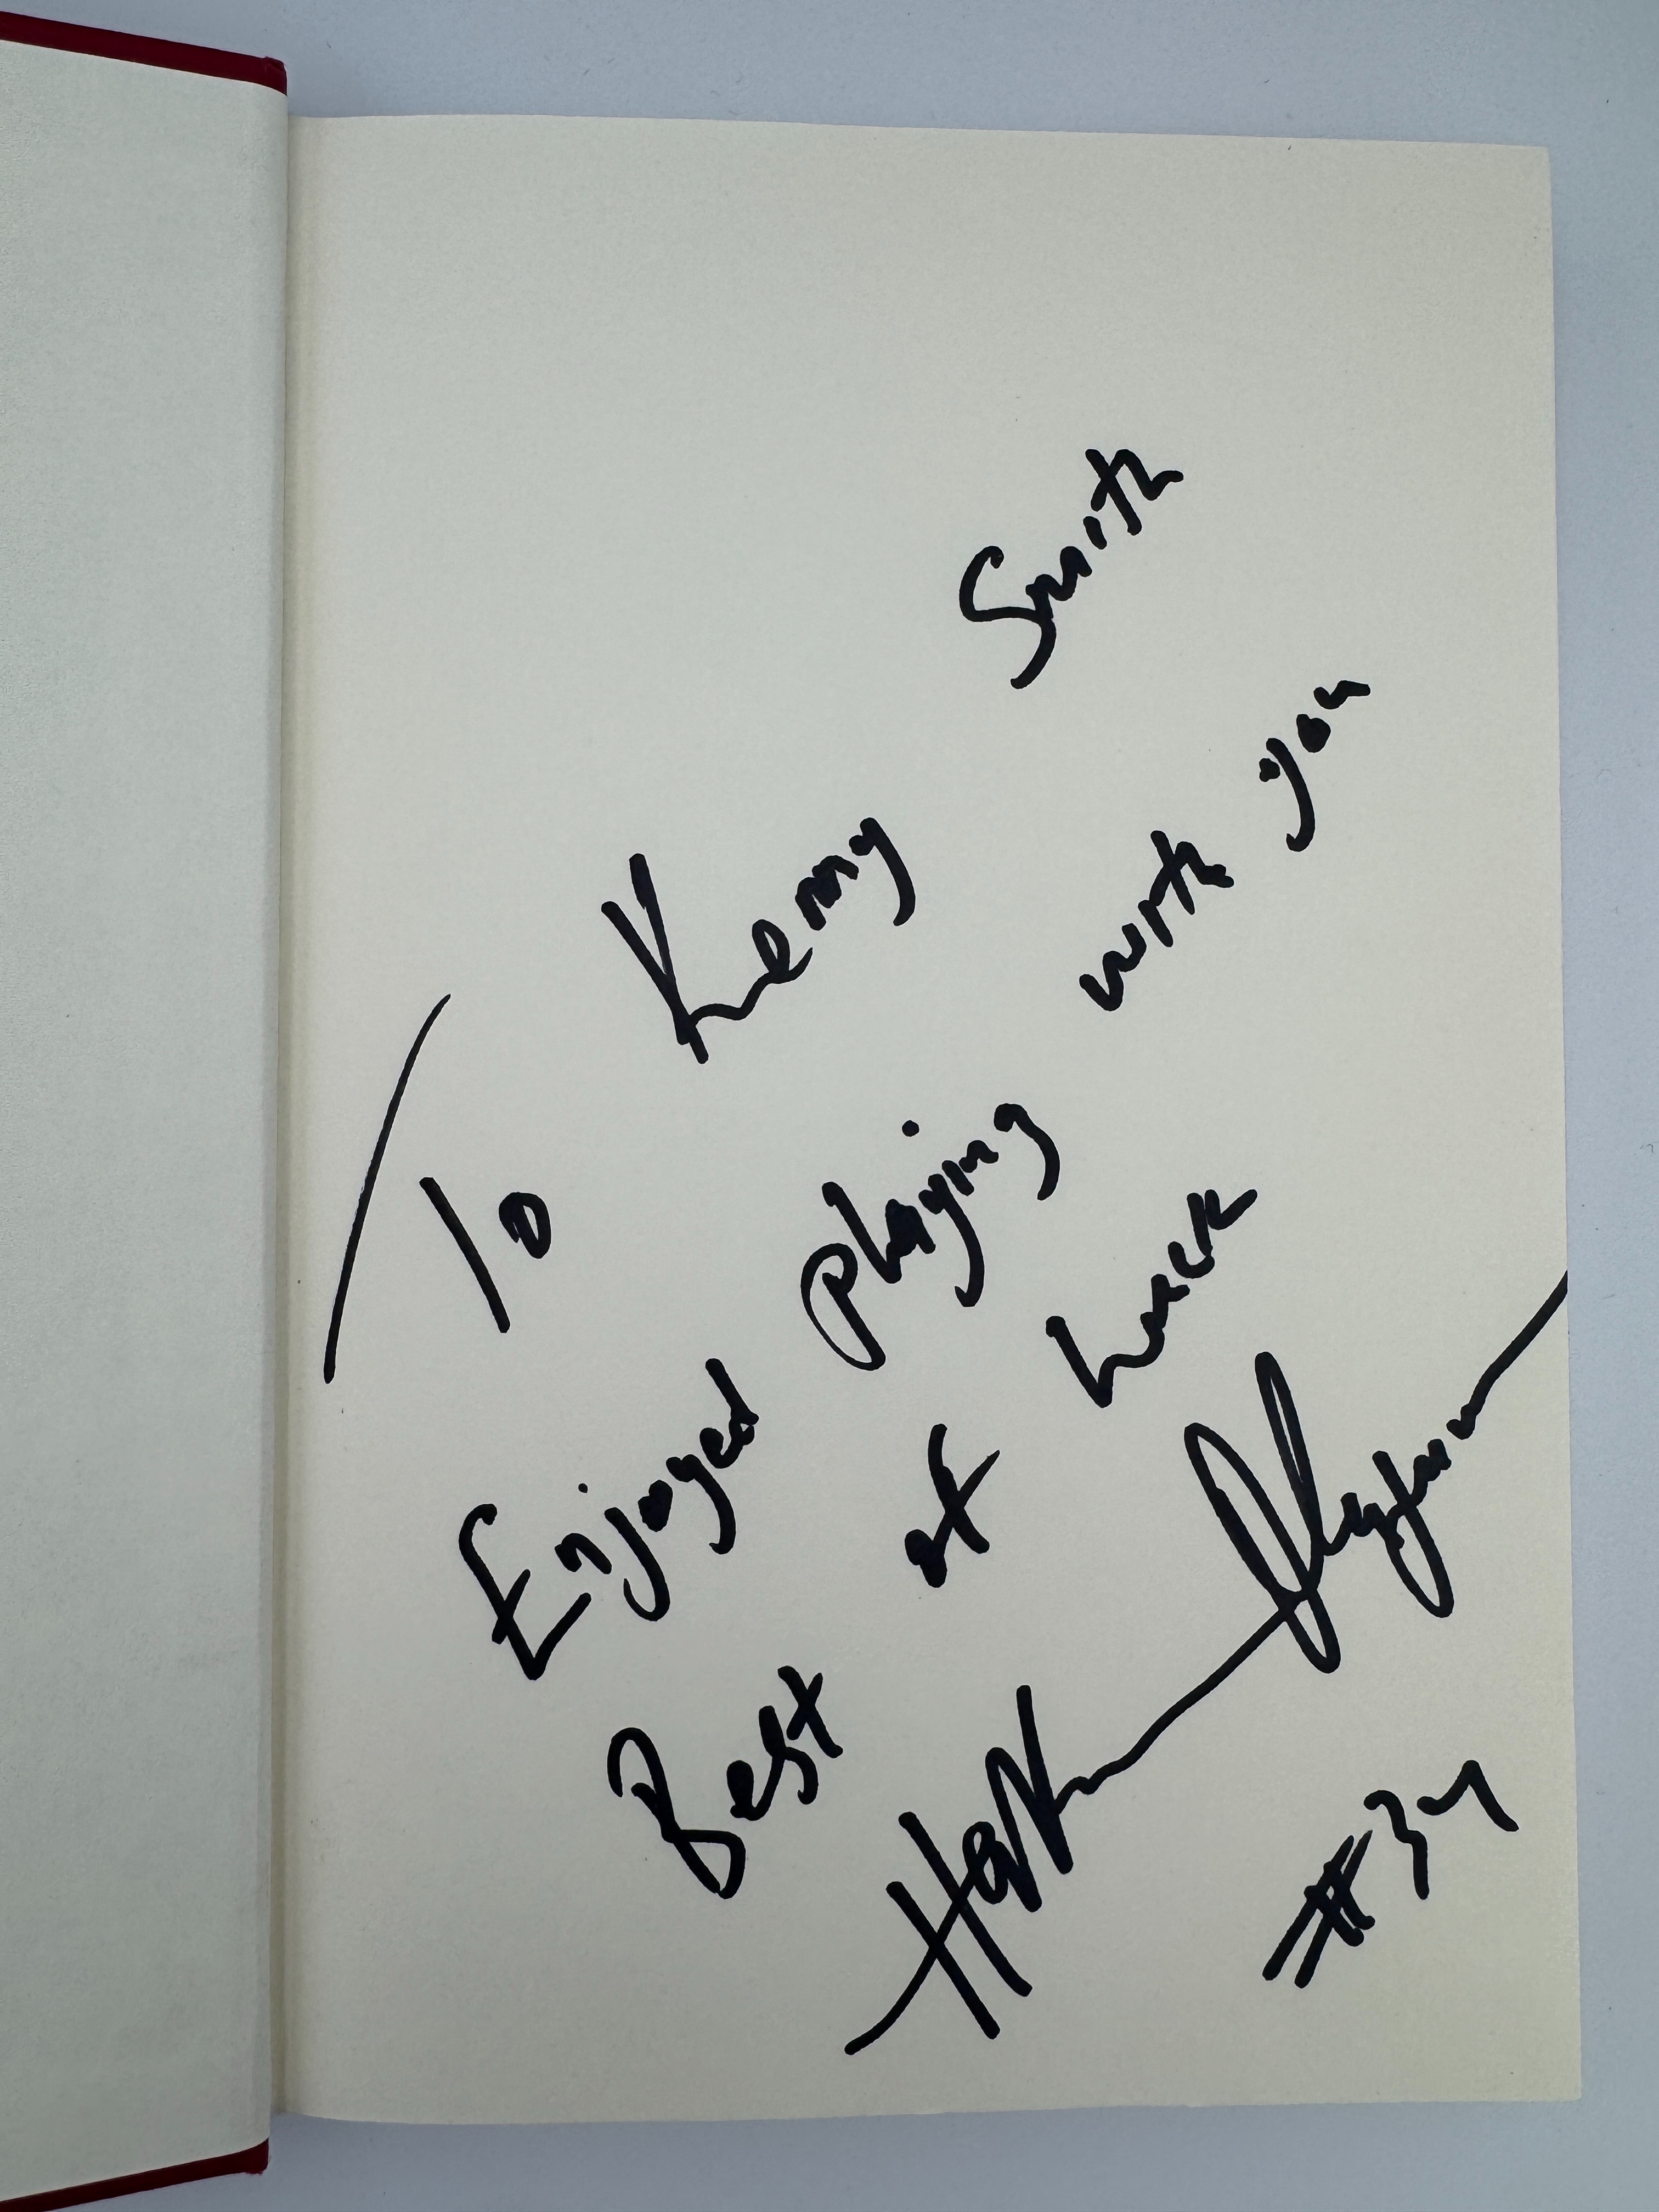 To Kenny Smith
Enjoyed playing with you
Best of Luck
Hakeem Olajuwon
#34